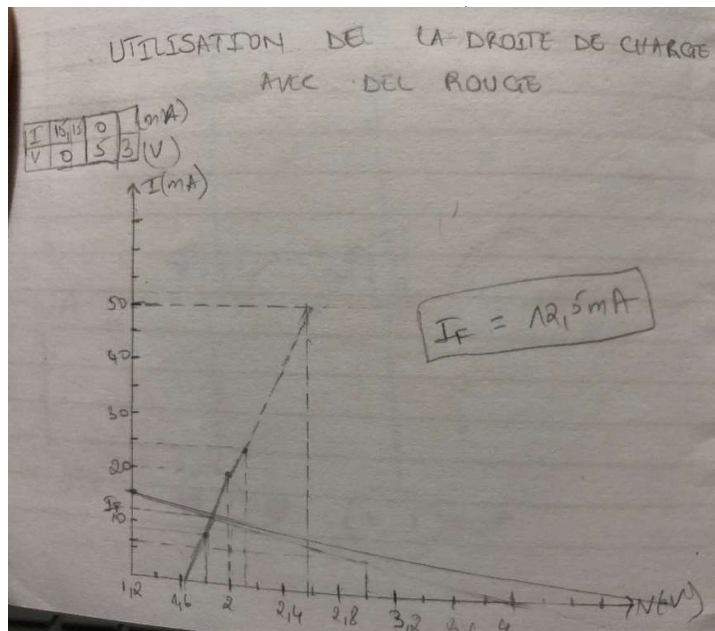 UTILISATION DE LA DROITE DE CHARGE
AVEC DEL ROUGE
I 15,15 0 (mA)
V 0 5 3 (V)
I(mA)
50
40
IF = 12,5mA
30
20
IF
10
1,2 1,6 2 2,4 2,8 3,2 4